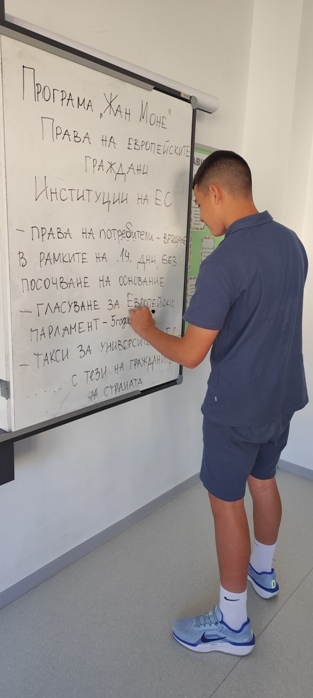 Програма „Жан Моне"
Права на европейските
граждани
Институции на ЕС
– права на потребители – връщане
в рамките на ..14.. дни без
посочване на основание
– гласуване за Европейски
парламент –
– такси за университе ЕС
...... с тези на граждани
за страната